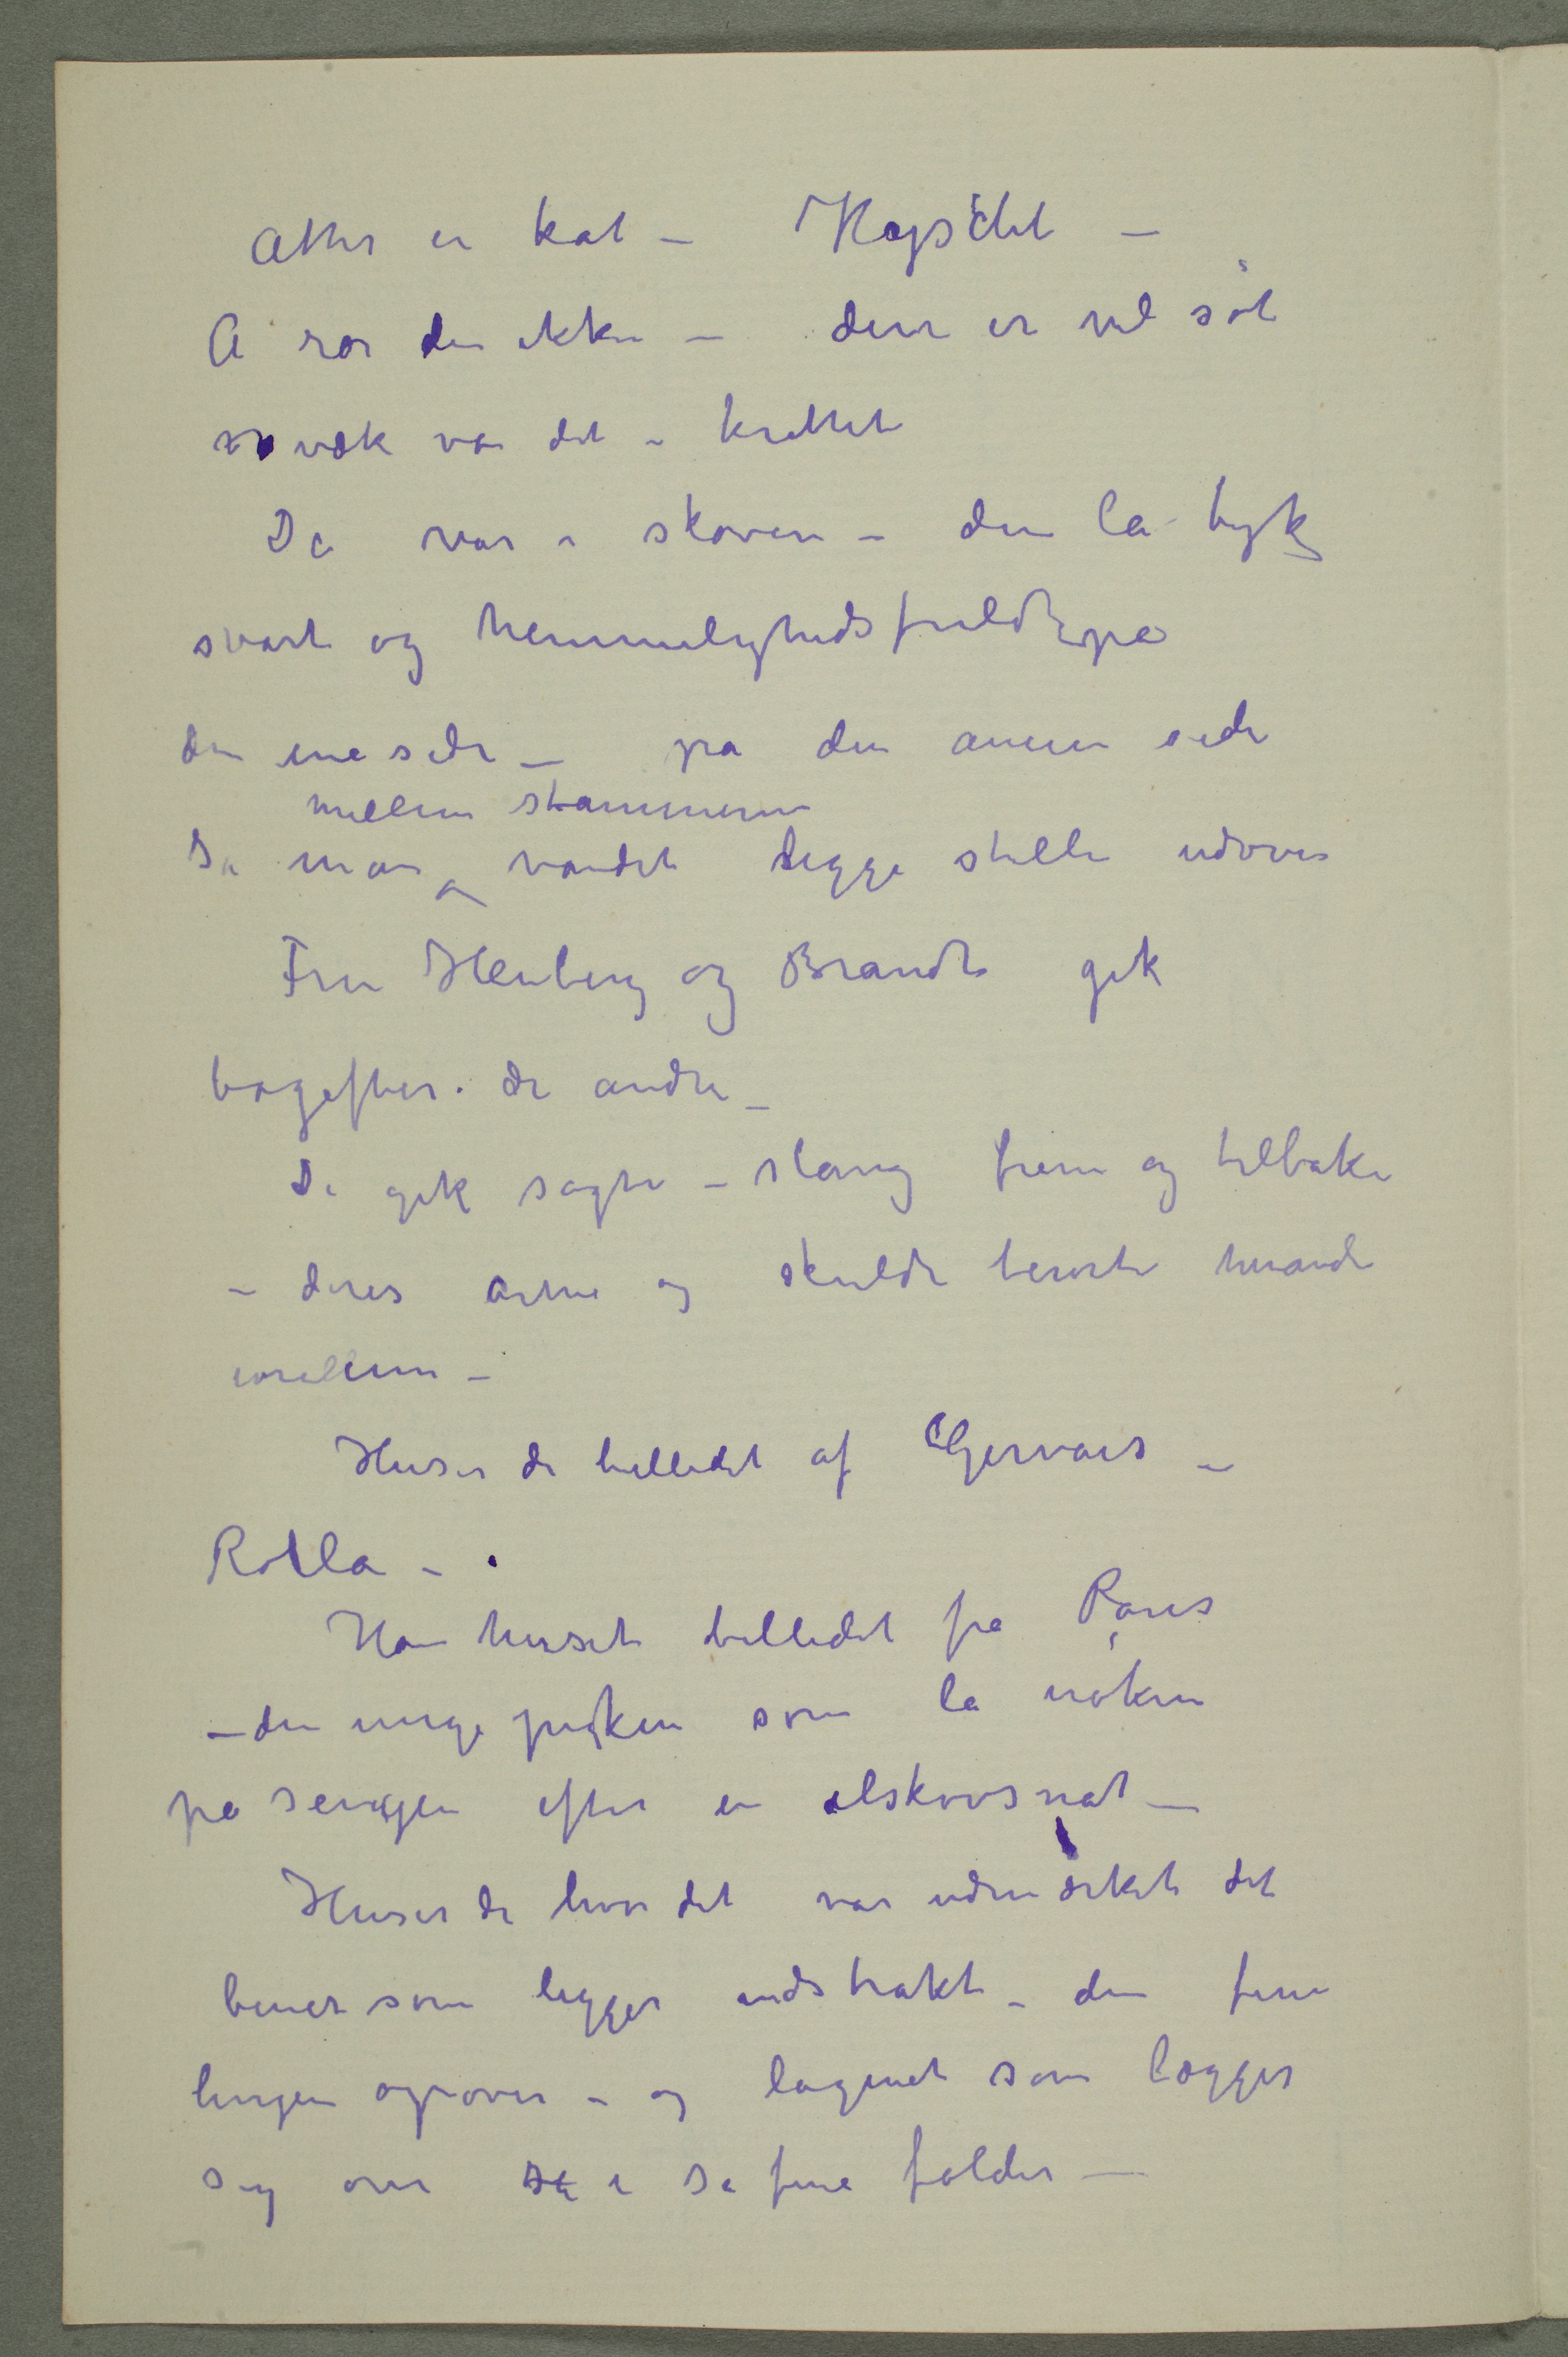 Atter en kat – Kys'et –
A rør den ikke – den er vel søt
væk var det i krattet
De var i skoven – den lå tyk
svart og hemmelighedsfuld på
den ene side – på den annen side
mellem stammerne
så man vandet ligge stille udover
Fru Heiberg og Brandt gik
bagefter. de andre –
De gik sagte – slang frem og tilbake
– deres arme og skuldre berørte hverandre
imellem –
Husker de billedet af Gervais –
Rolla –.
Han husket billedet fra Paris
– den unge piken som lå nøken
på sengen efter en elskovsnat –
Husker de hvor det var udmærket det
benet som ligger udstrakt – den fine
linjen opover – og lagenet som lægger
sig over så i så fine folder –